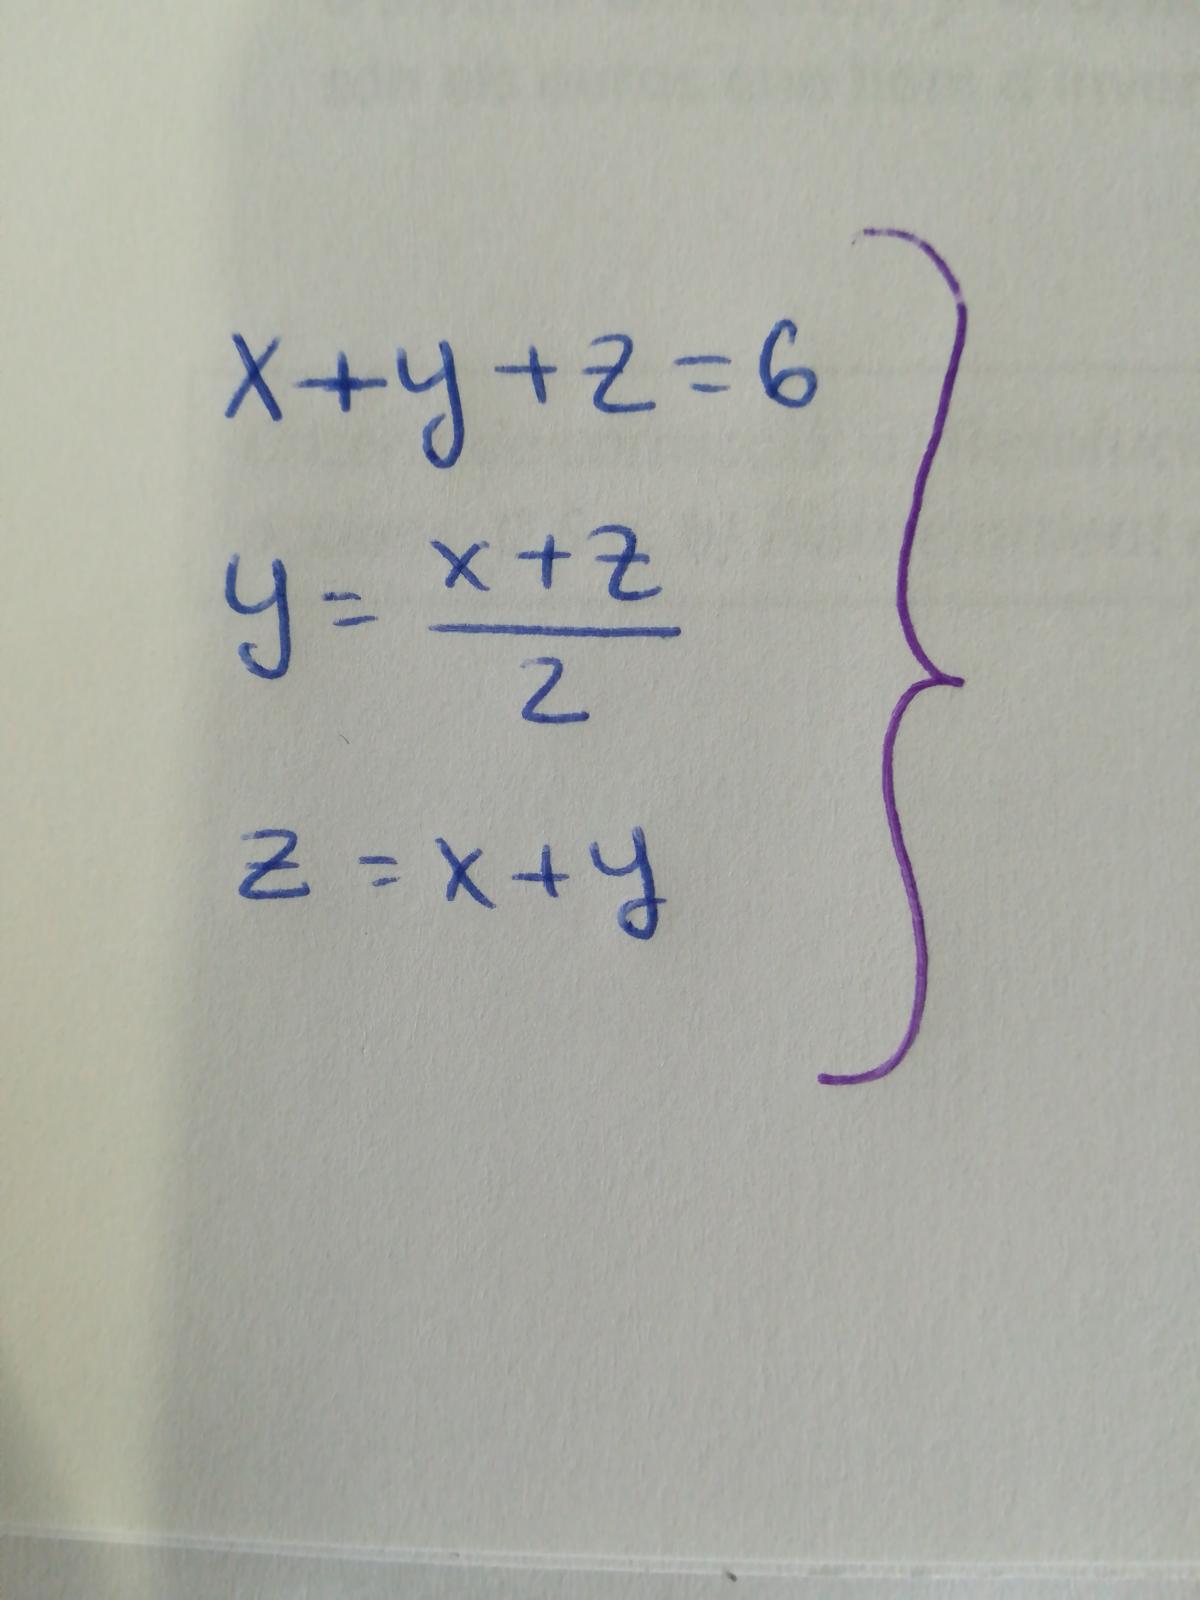 x+y+z=6
y=\frac{x+z}{2}
z=x+y